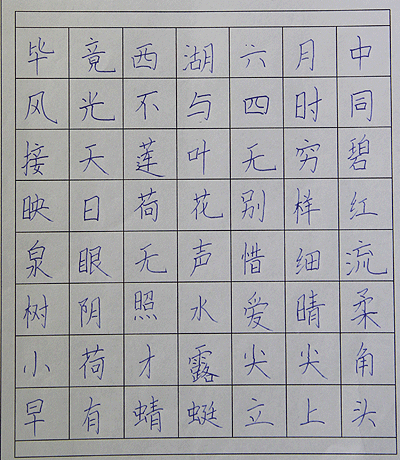 毕竟西湖六月中
风光不与四时同
接天莲叶无穷碧
映日荷花别样红
泉眼无声惜细流
树阴照水爱晴柔
小荷才露尖尖角
早有蜻蜓立上头